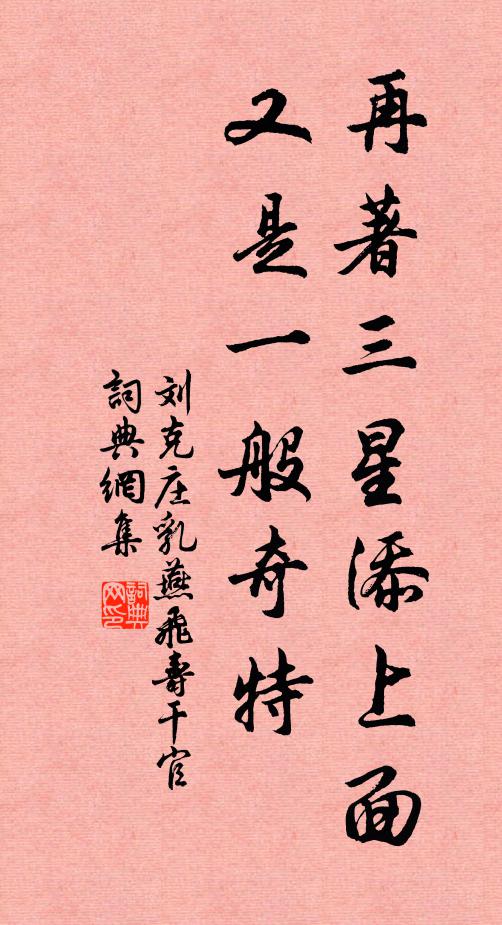 再著三星添上面
又是一般奇特
刘克庄乳燕飛壽干官
詞典網集
詞典
网印